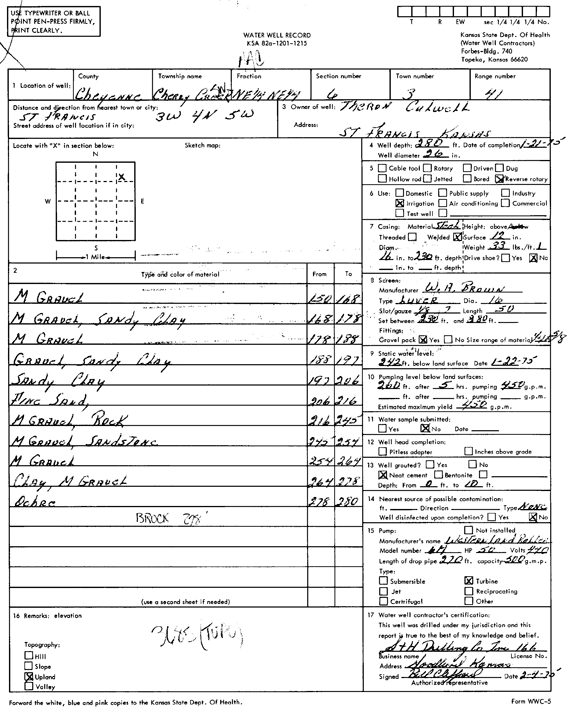 USE TYPEWRITER OR BALL
POINT PEN-PRESS FIRMLY,
PRINT CLEARLY.
WATER WELL RECORD
KSA 82a-1201-1215
T R EW sec 1/4 1/4 1/4 No.
Kansas State Dept. Of Health
(Water Well Contractors)
Forbes-Bldg. 740
Topeka, Kansas 66620
1 Location of well: County Township name Fraction Section number Town number Range number
Cheyenne Cherry NE¼ NE¼ 6 3 41
Distance and direction from nearest town or city:
ST FRANCIS 3W 4N 5W
Street address of well location if in city:
3 Owner of well: THERON CULWELL
Address:
ST FRANCIS KANSAS
Locate with "X" in section below: Sketch map:
N
X
W E
S
1 Mile
4 Well depth: 280 ft. Date of completion 1-21-75
Well diameter 26 in.
5 Cable tool Rotary Driven Dug
Hollow rod Jetted Bored X Reverse rotary
6 Use: Domestic Public supply Industry
X Irrigation Air conditioning Commercial
Test well
7 Casing: Material Steel Height: above
Threaded Welded X Surface 12 in.
Diam. Weight 33 lbs./ft.
16 in. to 230 ft. depth Drive shoe? Yes X No
in. to ft. depth
8 Screen:
Manufacturer W. A. BROWN
Type LUVER Dia. 16
Slot/gauge Length 50
Set between 230 ft. and 280 ft.
Fittings:
Gravel pack X Yes No Size range of material
9 Static water level:
242 ft. below land surface Date 1-22-75
10 Pumping level below land surfaces:
260 ft. after 5 hrs. pumping 450 g.p.m.
ft. after hrs. pumping g.p.m.
Estimated maximum yield 450 g.p.m.
11 Water sample submitted:
Yes X No Date
12 Well head completion:
Pitless adapter Inches above grade
13 Well grouted? Yes No
X Neat cement Bentonite
Depth: From 0 ft. to 10 ft.
14 Nearest source of possible contamination:
ft. Direction Type None
Well disinfected upon completion? Yes X No
15 Pump: Not installed
Manufacturer's name Western Land Roller
Model number HP 50 Volts 440
Length of drop pipe 270 ft. capacity 500 g.m.p.
Type:
Submersible X Turbine
Jet Reciprocating
Certrifugal Other
2 Type and color of material From To
M GRAVEL 150 168
M GRAVEL, SANDY CLAY 168 178
M GRAVEL 178 188
GRAVEL, SANDY CLAY 188 197
SANDY CLAY 197 206
FINE SAND, 206 216
M GRAVEL, ROCK 216 245
M GRAVEL, SANDSTONE 245 254
M GRAVEL 254 264
CLAY, M GRAVEL 264 278
OCHRE 278 280
BROCK 278'
(use a second sheet if needed)
16 Remarks: elevation
(TOPO)
Topography:
Hill
Slope
X Upland
Valley
17 Water well contractor's certification:
This well was drilled under my jurisdiction and this
report is true to the best of my knowledge and belief.
S+H Drilling Co. Inc 166
Business name License No.
Address Goodland Kansas
Signed Date 2-4-75
Authorized representative
Forward the white, blue and pink copies to the Kansas State Dept. Of Health.
Form WWC-5